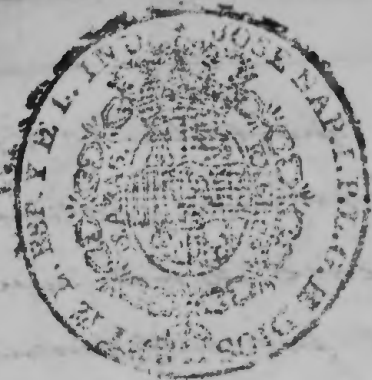 JOSE NAP. I. P. L. G. D DIOS REY D L. ESP. Y D L. IND.